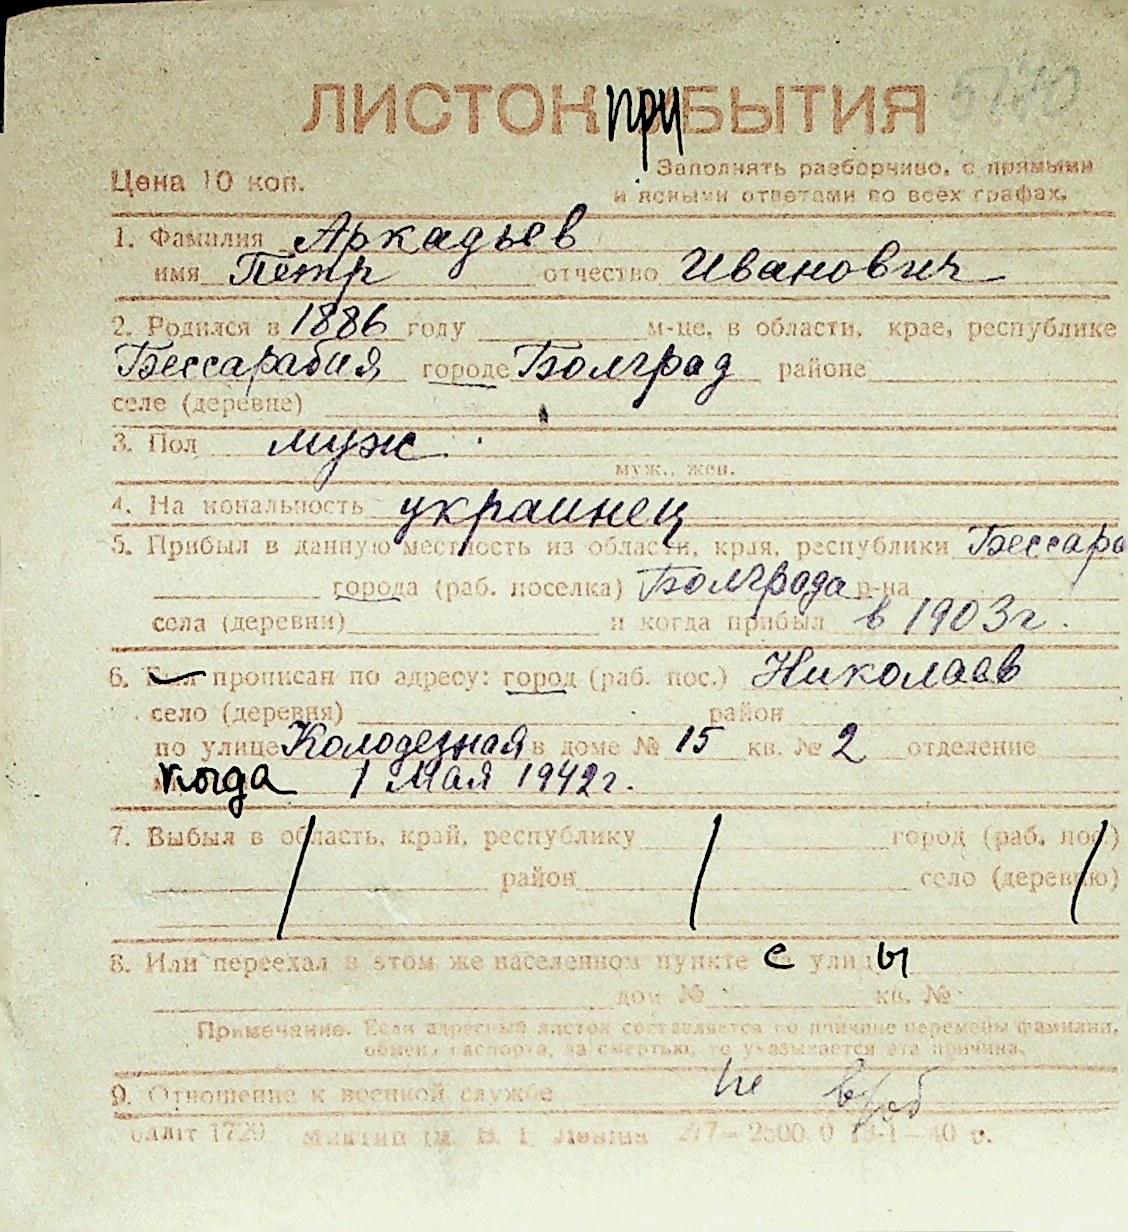 5770
ЛИСТОК при БЫТИЯ
Цена 10 коп.
Заполнять разборчиво, с прямыми
и ясными ответами во всех графах.
1. Фамилия Аркадьев
имя Петр отчество Иванович
2. Родился в 1886 году м-це, в области, крае, республике
Бессарабия городе Болград районе
селе (деревне)
3. Пол муж
муж., жен.
4. Национальность украинец
5. Прибыл в данную местность из области, края, республики Бессара
города (раб. поселка) Болграда р-на
села (деревни) и когда прибыл в 1903 г.
6. прописан по адресу: город (раб. пос.) Николаев
село (деревня) район
по улице Колодезная в доме № 15 кв. № 2 отделение
когда 1 Мая 1942 г.
7. Выбыл в область, край, республику город (раб. пос.)
район село (деревню)
8. Или переехал в этом же населенном пункте с улицы
дом № кв. №
Примечание. Если адресный листок составляется по причине перемены фамилии,
обмена паспорта, за смертью, то указывается эта причина.
9. Отношение к военной службе не в/об
1720 В. І. Леніна 217—2500.0 —1—40 г.